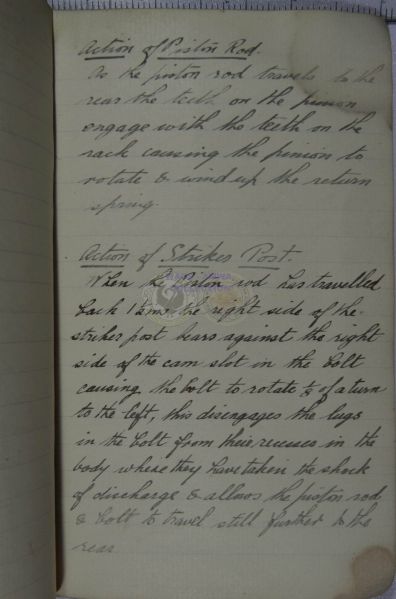 Action of Piston Rod.
As the piston rod travels to the
rear the teeth on the pinion
engage with the teeth on the
rack causing the pinion to
rotate & wind up the return
spring.
Action of Striker Post.
When the Piston rod has travelled
back the right side of the
striker post bears against the right
side of the cam slot in the bolt
causing the bolt to rotate of a turn
to the left, this disengages the lugs
in the bolt from their recesses in the
body where they have taken the shock
of discharge & allows the piston rod
& bolt to travel still further to the
rear